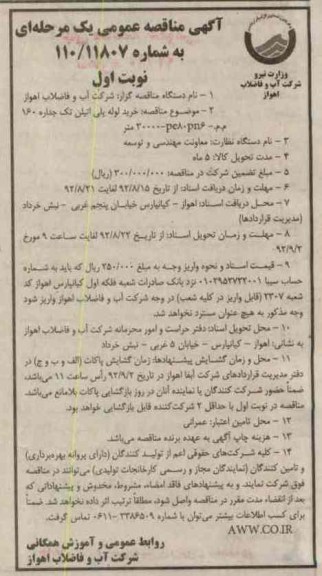 آگهی مناقصه عمومی یک مرحله‌ای
به شماره ۱۱۰/۱۱۸۰۷
نوبت اول
وزارت نیرو
شرکت آب و فاضلاب
اهواز
۱ – نام دستگاه مناقصه گزار: شرکت آب و فاضلاب اهواز
۲ – موضوع مناقصه: خرید لوله پلی اتیلن تک جداره ۱۶۰
م.م.- pe۸۰pn۶-۳۰۰۰۰ متر
۳ – نام دستگاه نظارت: معاونت مهندسی و توسعه
۴ – مدت تحویل کالا: ۵ ماه
۵ – مبلغ تضمین شرکت در مناقصه: ۳۰۰/۰۰۰/۰۰۰ (ریال)
۶ – مهلت و زمان دریافت اسناد: از تاریخ ۹۲/۸/۱۵ لغایت ۹۲/۸/۲۱
۷ – محل دریافت اسناد: اهواز – کیانپارس خیابان پنجم غربی – نبش خرداد
(مدیریت قراردادها)
۸ – مهلت و زمان تحویل اسناد: از تاریخ ۹۲/۸/۲۲ لغایت ساعت ۹ مورخ
۹۲/۹/۲
۹ – قیمت اسناد و نحوه واریز وجه به مبلغ ۲۵۰/۰۰۰ ریال که باید به شماره
حساب سیبا ۰۱۰۲۹۵۲۷۳۲۰۰۱ نزد بانک صادرات شعبه فلکه اول کیانپارس اهواز کد
شعبه ۲۳۰۷ (قابل واریز در کلیه شعب) در وجه شرکت آب و فاضلاب اهواز واریز شود
وجه مذکور به هیچ عنوان مسترد نخواهد شد.
۱۰ – محل تحویل اسناد: دفتر حراست و امور محرمانه شرکت آب و فاضلاب اهواز
به نشانی: اهواز – کیانپارس – خیابان ۵ غربی – نبش خرداد
۱۱ – محل و زمان گشایش پیشنهادها: زمان گشایش پاکات (الف و ب و ج) در
دفتر مدیریت قراردادهای شرکت آبفا اهواز در تاریخ ۹۲/۹/۲ رأس ساعت ۱۱ می‌باشد.
ضمناً حضور شرکت کنندگان یا نماینده آنان در روز بازگشایی پاکات بلامانع می‌باشد.
مناقصه در نوبت اول با حداقل ۲ شرکت‌کننده قابل بازگشایی خواهد بود.
۱۲ – محل تامین اعتبار: عمرانی
۱۳ – هزینه چاپ آگهی به عهده برنده مناقصه می‌باشد.
۱۴ – کلیه شرکت‌های حقوقی اعم از تولید کنندگان (دارای پروانه بهره‌برداری)
و تامین کنندگان (نمایندگان مجاز و رسمی کارخانجات تولیدی) می‌توانند در مناقصه
فوق شرکت نمایند. و به پیشنهادهای فاقد امضاء، مشروط، مخدوش و پیشنهاداتی که
بعد از انقضاء مدت مقرر در مناقصه واصل شود، مطلقاً ترتیب اثر داده نخواهد شد. ضمناً
برای کسب اطلاعات بیشتر می‌توان با شماره ۳۳۸۶۵۰۹-۰۶۱۱ تماس گرفت.
AWW.CO.IR
روابط عمومی و آموزش همگانی
شرکت آب و فاضلاب اهواز